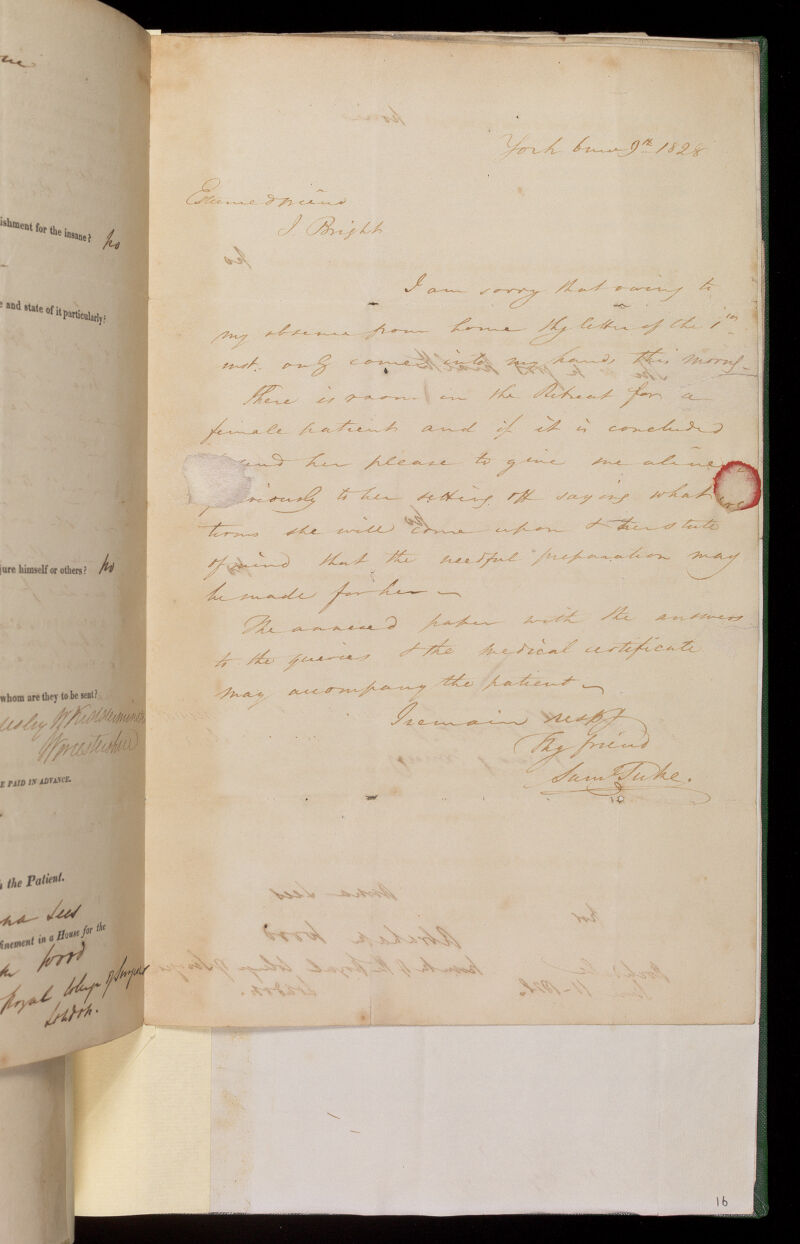 ishment for the insane? no
e and state of it particularly?
jure himself or others? no
whom are they to be sent?
Worcestershire
E PAID IN ADVANCE.
h the Patient.
na Lees
finement in a House for the
Wood
Royal College of Surgeons
London.
York 6 mo 9th 1828
Esteemed friend
J. Bright
I am sorry that owing to
my absence from home thy letter of the 1st
inst. only came into my hands this morng.
There is room in the Retreat for a
female patient and if it is concluded
send her please to give me a line
previously to her setting off saying what
tions she will come upon & her state
of mind that the needful preparation may
be made for her
The annexed paper with the answers
to the queries & the medical certificate
may accompany the patient
I remain respy
Thy friend
Saml Tuke.
16